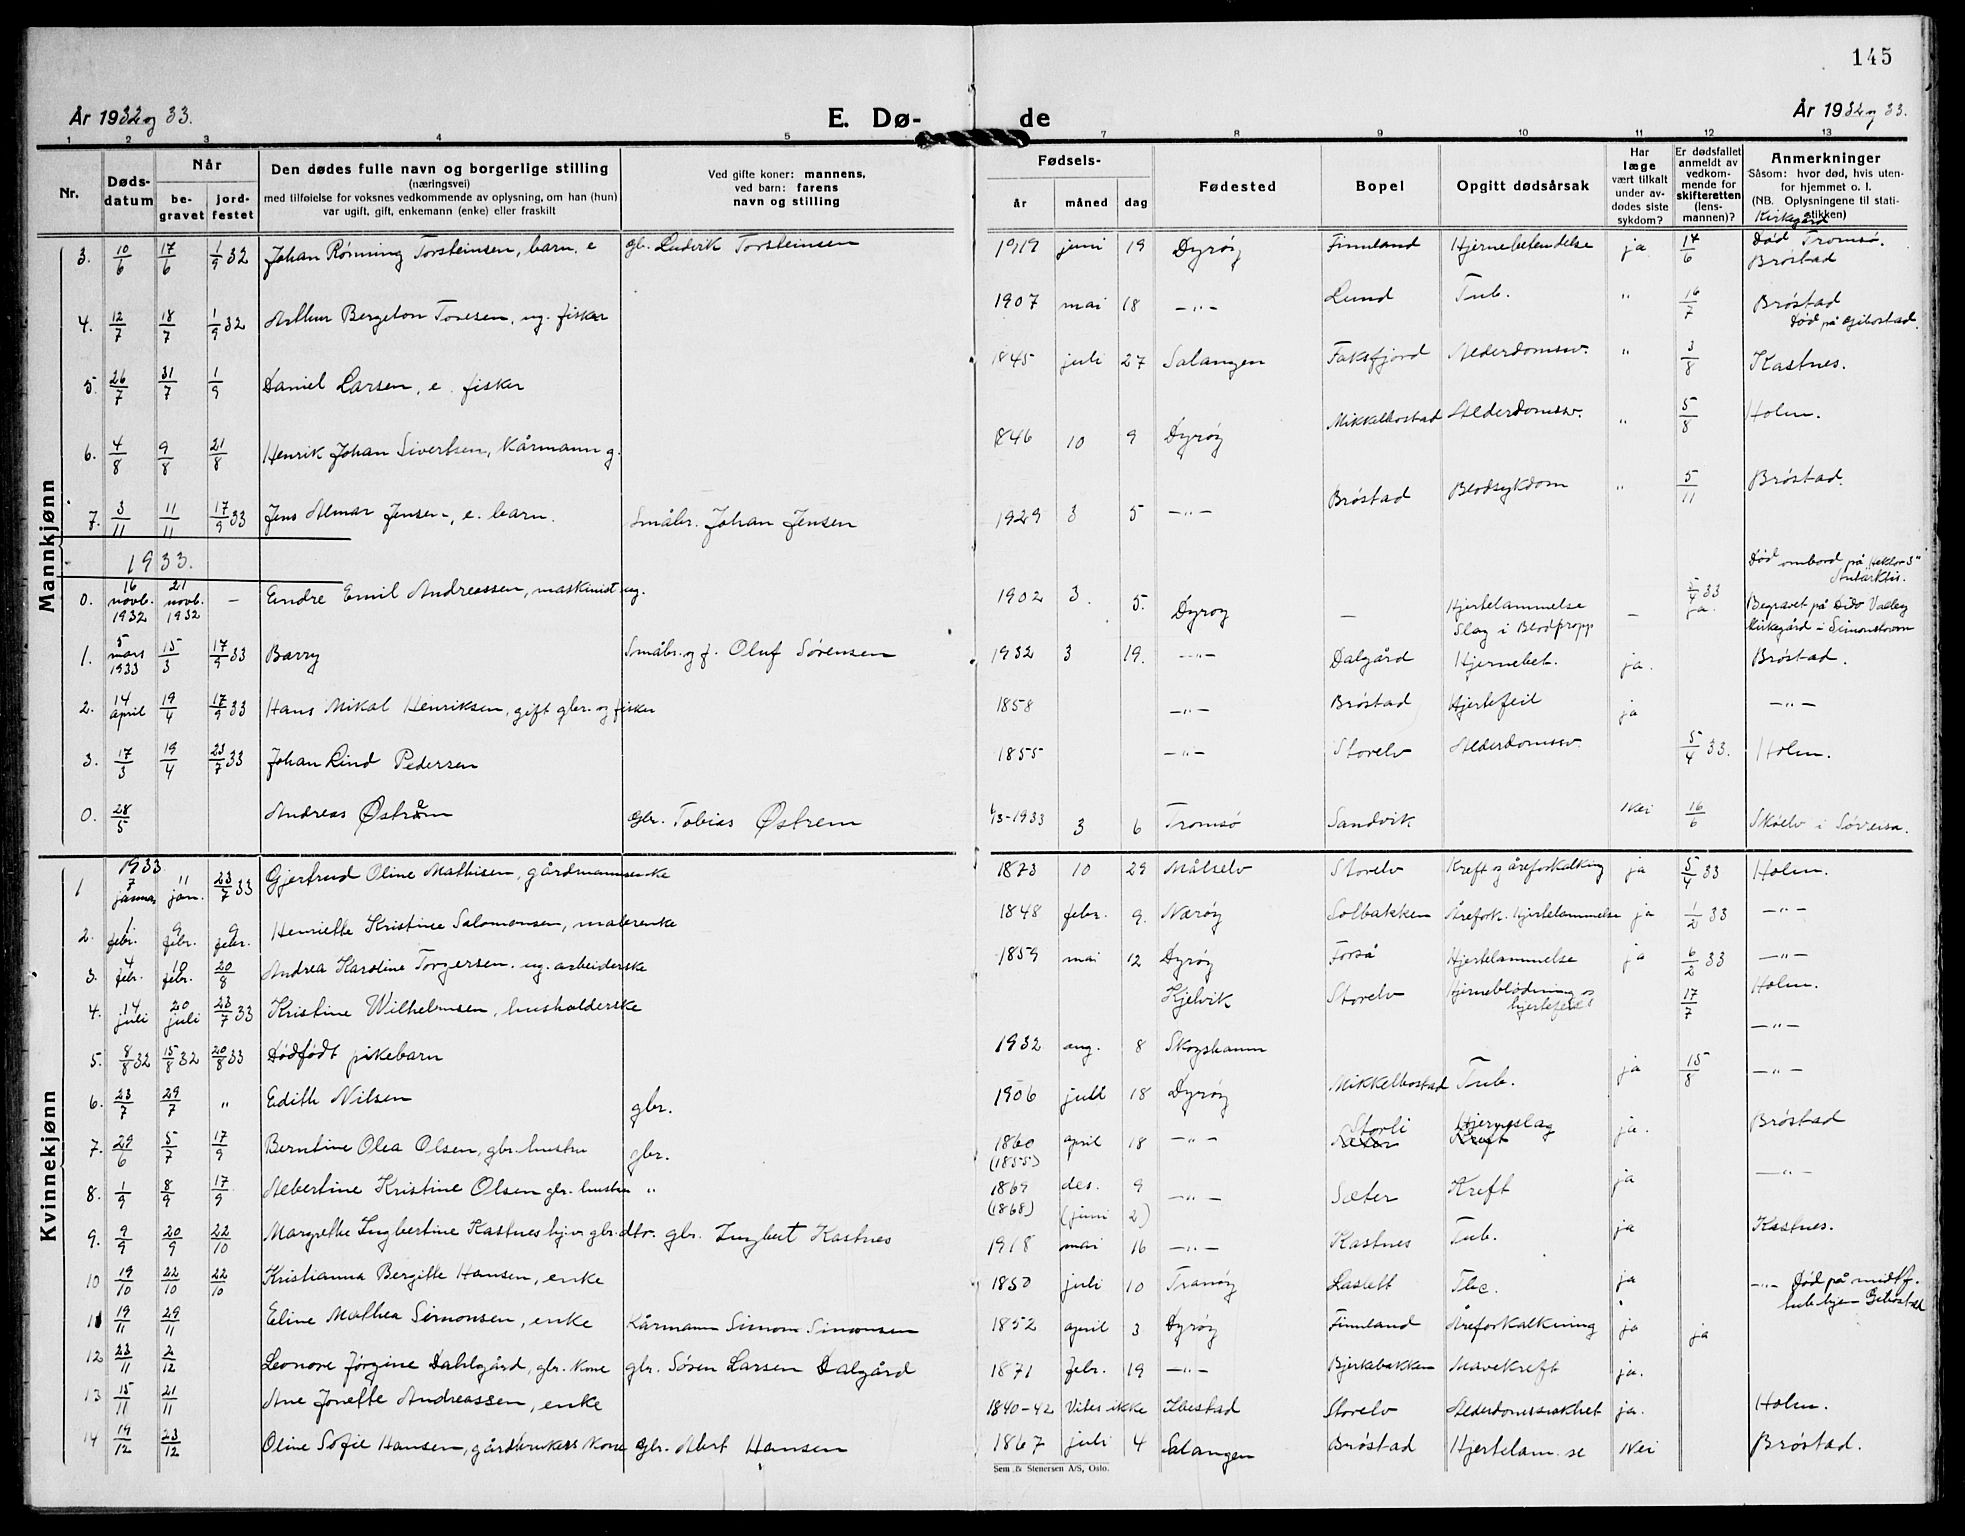 145
År 1932 og 33.
E. Dø- de
År 1932 og 33.
1 2 3 4 5 7 8 9 10 11 12 13
Nr. Døds-datum Når be-gravet jord-festet Den dødes fulle navn og borgerlige stilling (næringsvei) med tilføielse for voksnes vedkommende av oplysning, om han (hun) var ugift, gift, enkemann (enke) eller fraskilt Ved gifte koner: mannens, ved barn: farens navn og stilling Fødsels- år måned dag Fødested Bopel Opgitt dødsårsak Har læge vært tilkalt under av-dødes siste sykdom? Er dødsfallet anmeldt av vedkom-mende for skifteretten (lens-mannen)? Anmerkninger Såsom: hvor død, hvis uten-for hjemmet o. l. (NB. Oplysningene til stati-stikken) Kirkegård
Mannkjønn
3. 10/6 17/6 1/9 32 Johan Rønning Torsteinsen, barn, e gbr. Ludvik Torsteinsen 1919 juni 19 Dyrøy Finnland Hjernebetendelse ja 14/6 Død Tromsø. Brøstad
4. 12/7 18/7 1/9 32 Arthur Bergeton Toresen, ug. fisker 1907 mai 18 -"- Lund Tub. " 16/7 Brøstad Død på Gibostad.
5. 26/7 31/7 1/9 Daniel Larsen, e. fisker 1845 juli 27 Salangen Faksfjord Alderdomssv. " 3/8 Kastnes.
6. 4/8 9/8 21/8 Henrik Johan Sivertsen, Kårmann g. 1846 10 9 Dyrøy Mikkelbostad Alderdomssv. " 5/8 Holm.
7. 3/11 11/11 17/9 33 Jens Almar Jensen, e. barn. Småbr. Johan Jensen 1929 3 5 -"- Brøstad Blodsykdom " 5/11 Brøstad.
1933.
0. 16 novb. 1932 21 novb. 1932 - Endre Emil Andreassen, maskinist ug. 1902 3. 5. Dyrøy - Hjertelammelse Slag i Blodpropp - 5/4 33 ja. Død ombord på "Hektor 5" Antarktis. Begravet på Dido Valley Kirkegård i Simonstown
1. 5 mars 1933 15/3 17/9 33 Barry Småbr. og f. Oluf Sørensen 1932 3 19. -"- Dalgård Hjernebet. ja. Brøstad.
2. 14 april 19/4 17/9 33 Hans Mikal Henriksen, gift gbr. og fisker 1858 -"- Brøstad Hjertefeil ja -"-
3. 17/3 19/4 23/7 33 Johan Lind Pedersen 1855 -"- Storelv Alderdomssv. 5/4 33. Holm.
0. 28/5 Andreas Østrem gbr. Tobias Østrem 6/3-1933 3 6 Tromsø Sandvik Nei 16/6 Skøelv i Sørreisa.
Kvinnekjønn
1933
1 7 januar 11 jan. 23/7 33 Gjertrud Oline Mathisen, gårdmannsenke 1873 10 29 Målselv Storelv Kreft og åreforkalkning ja 5/4 33 Holm.
2. 1. febr. 9 febr. 9 febr. Henriette Kristine Salomonsen, malerenke 1848 febr. 9. Nærøy Solbakken Årefork. Hjertelammelse ja 1/2 33 -"-
3. 4 febr. 10 febr. 20/8 Andrea Karoline Torgersen. ug. arbeiderske 1859 mai 12 Dyrøy Forså Hjertelammelse ja 6/2 33 -"-
4. 14 juli 20 juli 23/7 33 Kristine Wilhelmsen, husholderske Kjelvik Storelv Hjerneblødning og hjertefeil 17/7 Holm.
5. 8/8 32 15/8 32 20/8 33 Dødfødt pikebarn 1932 aug. 8 Skogshamn -"-
6. 23/7 29/7 " Edith Nilsen gbr. 1906 juli 18 Dyrøy Mikkelbostad Tub. ja 15/8 -"-
7. 29/6 5/7 17/9 Berntine Olea Olsen, gbr. hustru gbr. 1860 (1855) april 18 -"- Storli Hjerneslag Kreft ja. Brøstad
8. 1/9 8/9 17/9 Albertine Kristine Olsen gbr. hustru " 1869 (1868) des. 9 (juni 2) -"- Sæter Kreft ja -"-
9. 9/9 20/9 22/10 Margrethe Ingbertine Kastnes hjv. gbr. dtr. gbr. Ingbert Kastnes 1918 mai 16 -"- Kastnes Tub. ja Kastnes.
10 19/10 22/10 22/10 Kristianna Bergitte Hansen, enke 1850 juli 10 Tranøy ja -"- Død på midtf. tub. hjem Gibostad
11 19/11 29/11 Eline Mathea Simonsen, enke Kårmann Simon Simonsen 1852 april 3 Dyrøy Finnland Åreforkalkning ja ja
12 23/11 2/12 Leonore Jørgine Dahlgård, gbr. Kone gbr. Søren Larsen Dalgård 1871 febr. 19 -"- Bjerkbakken Mavekreft ja.
13 15/11 21/11 Ane Jonette Andreassen, enke 1840-42 Vites ikke Ibestad Storelv Alderdomssvakhet ja. Holm.
14 19/12 23/12 Oline Sofie Hansen, gårdbrukers Kone gbr. Albert Hansen 1867 juli 4 Salangen Brøstad Hjertelam. se Nei Brøstad.
Sem & Stenersen A/S, Oslo.